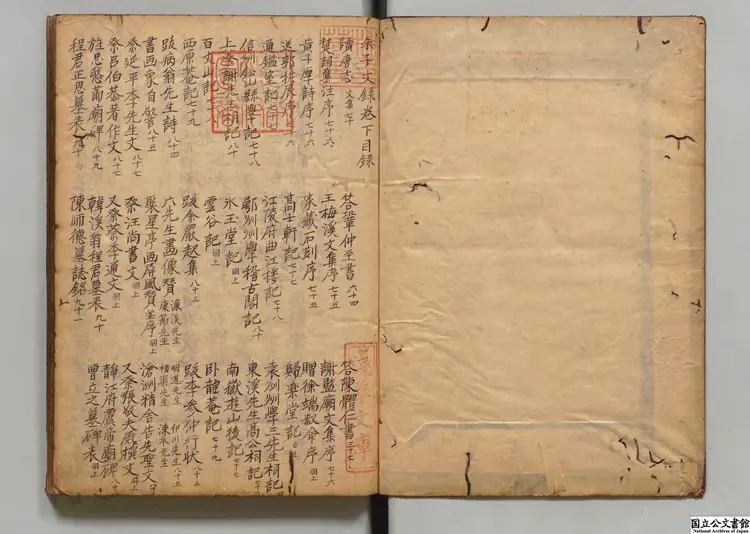 朱子文録卷下目録
讀唐志 文集七十
答鞏仲至書 六十四
答陳體仁書 三十七
楚詞集注序 七十六
王梅溪文集序 七十五
謝監廟文集序 七十六
黄子厚詩序 七十六
家藏石刻序 七十五
贈徐端叔命序 同上
送郭拱辰序 七十六
高士軒記 七十七
歸樂堂記 同上
通鑑室記
江陵府曲江樓記 七十八
袁州州學三先生祠記
信州鉛山縣學記 七十八
鄂州州學稽古閣記 八十
東溪先生高公祠記
上蔡謝先生祠記 八十
冰玉堂記 同上
南嶽遊山後記 七十七
百丈山記 七十八
雲谷記 同上
臥龍菴記 七十九
西原菴記 七十九
跋余巖起集 八十三
跋李參仲行状 八十三
跋病翁先生詩 八十四
六先生畫像贊 濂溪先生 康節先生
明道先生 横渠先生 伊川先生 涑水先生 八十五
書画象自警 八十五
聚星亭画屏風贊並序 同上
滄洲精舍告先聖文
祭延平李先生文 八十七
祭汪尚書文 同上
又祭張敬夫殿撰文 同上
祭呂伯恭著作文 八十七
又祭蔡季通文 同上
靜江府虞帝廟碑 八十八
旌忠愍節廟碑 八十九
韓溪翁程君墓表 九十
曾立之墓碑表 同上
程君正思墓表 九十
陳師德墓誌銘 九十一
国立公文書館
National Archives of Japan